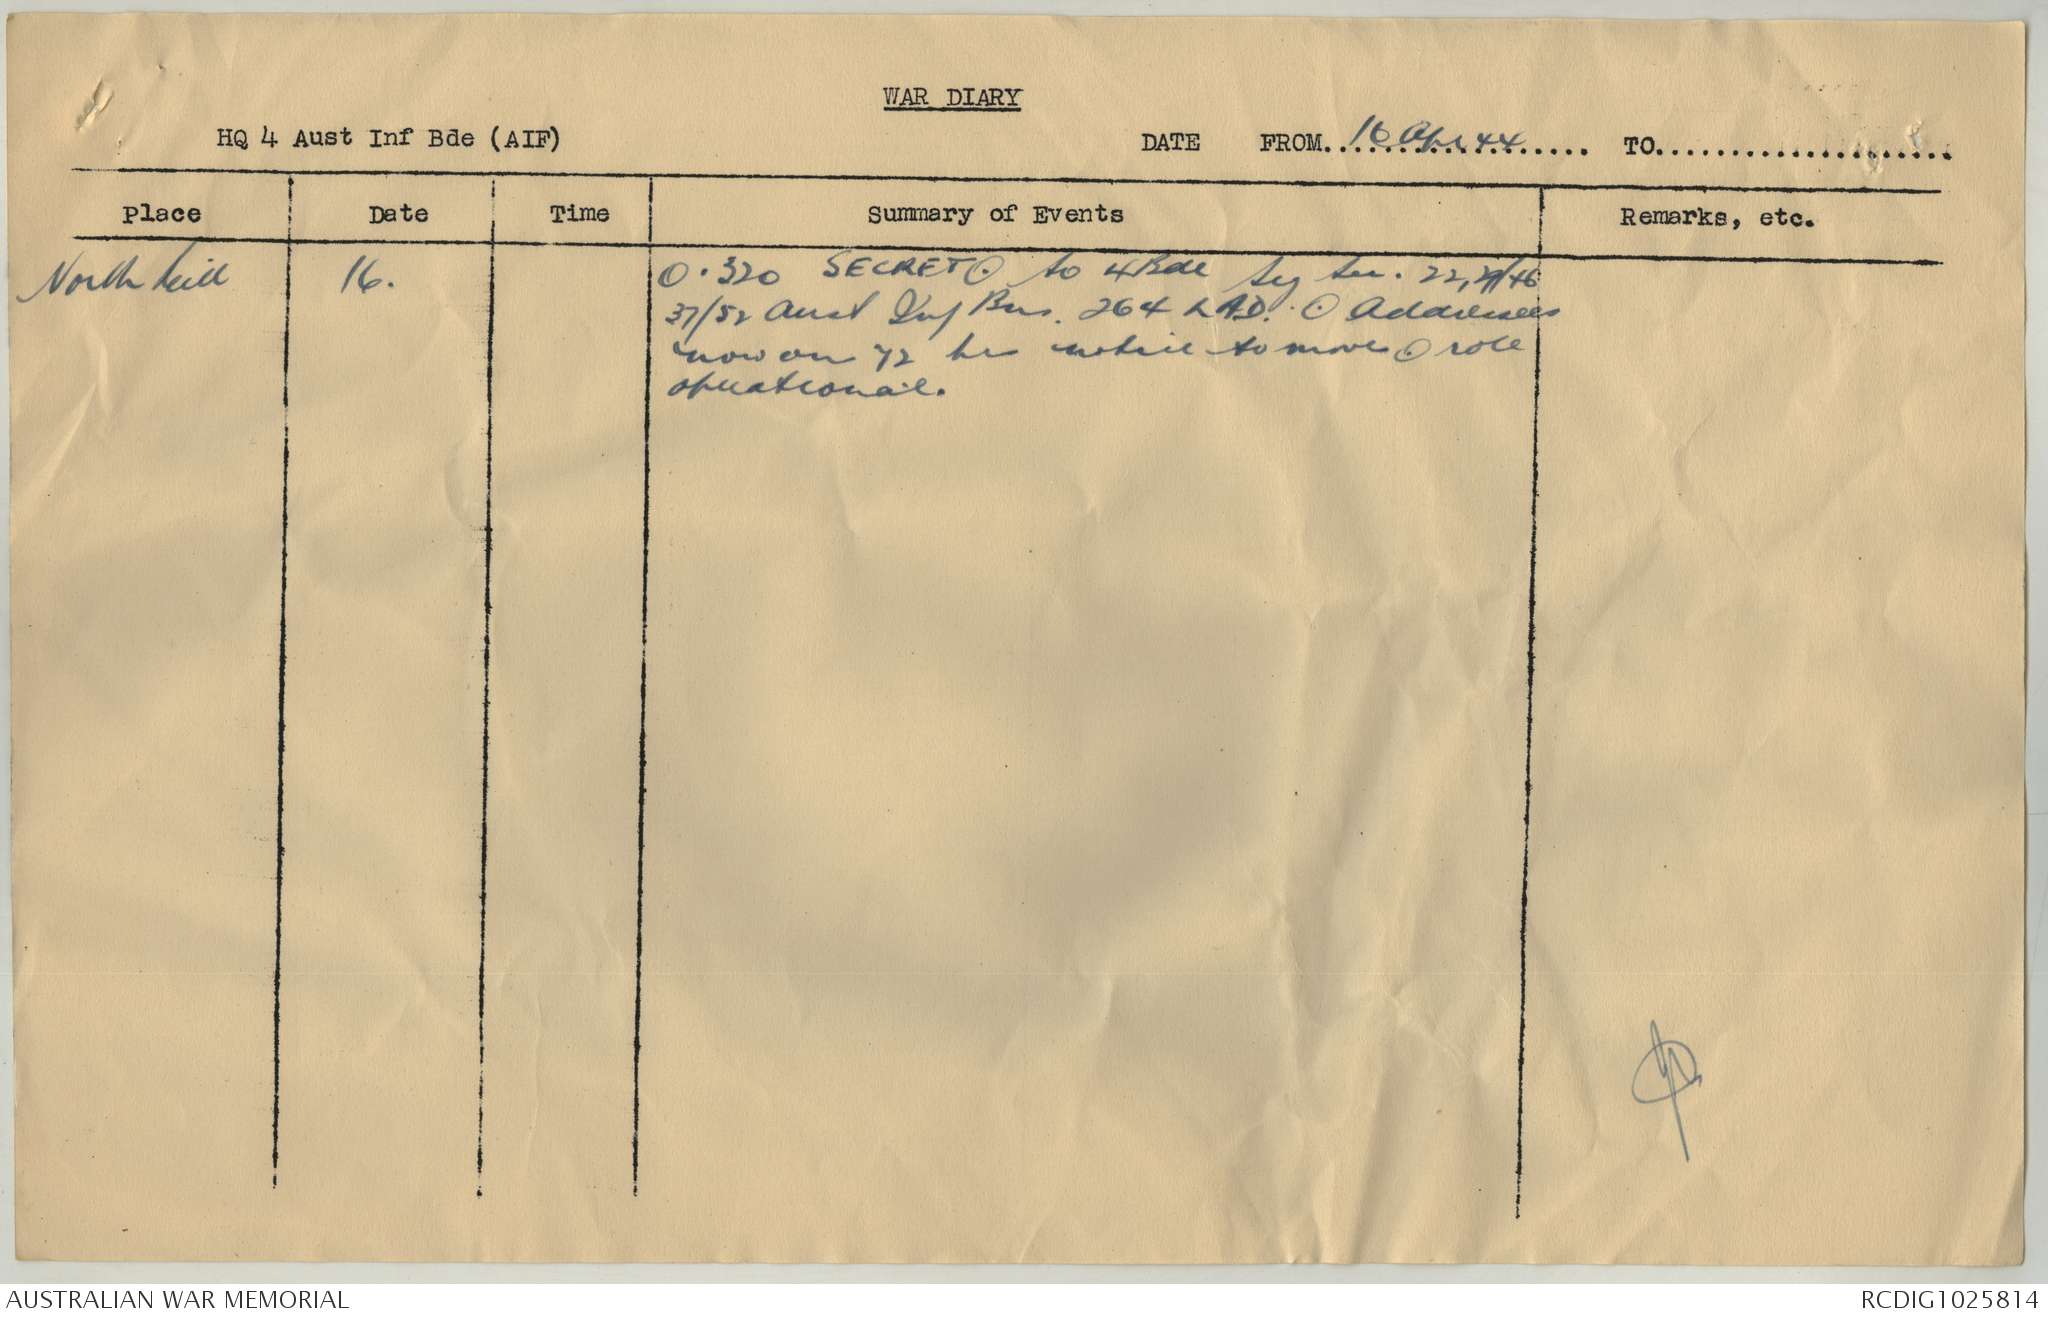 WAR DIARY
HQ 4 Aust Inf Bde (AIF)
DATE FROM..16 Apr 44.. TO....................
Place Date Time Summary of Events Remarks, etc.
North hill 16. O.320 SECRET ⨀ to 4 Bde Sig Sec. 22, 29/46
37/52 Aust Inf Bns. 264 LAD. ⨀ Addressees
now on 72 hrs notice to move ⨀ role
operational.
AUSTRALIAN WAR MEMORIAL
RCDIG1025814